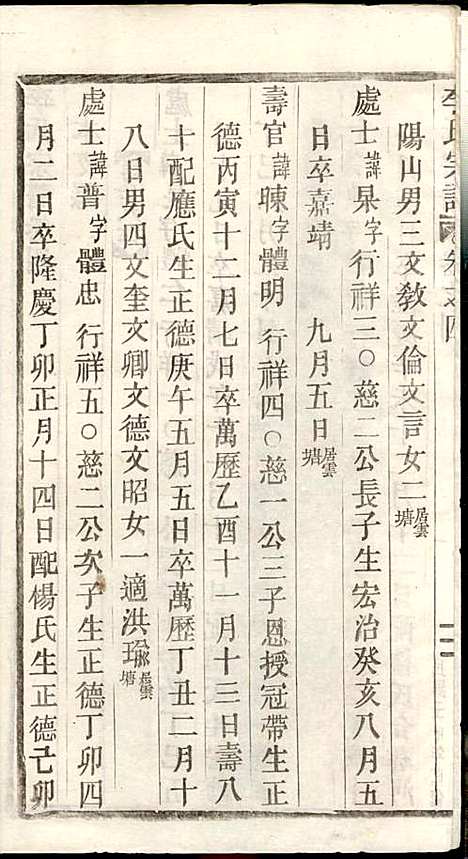 李氏宗譜 卷之四
陽山男三文教文倫文言女二居雲塘
處士諱杲字 行祥三○慈二公長子生宏治癸亥八月五
日卒嘉靖 九月五日居雲塘
壽官諱暕字體明 行祥四○慈一公三子恩授冠帶生正
德丙寅十二月七日卒萬歷乙酉十一月十三日壽八
十配應氏生正德庚午五月五日卒萬歷丁丑二月十
八日男四文奎文卿文德文昭女一適洪瑜居雲塘
處士諱普字體忠 行祥五○慈二公次子生正德丁卯四
月二日卒隆慶丁卯正月十四日配楊氏生正德己卯